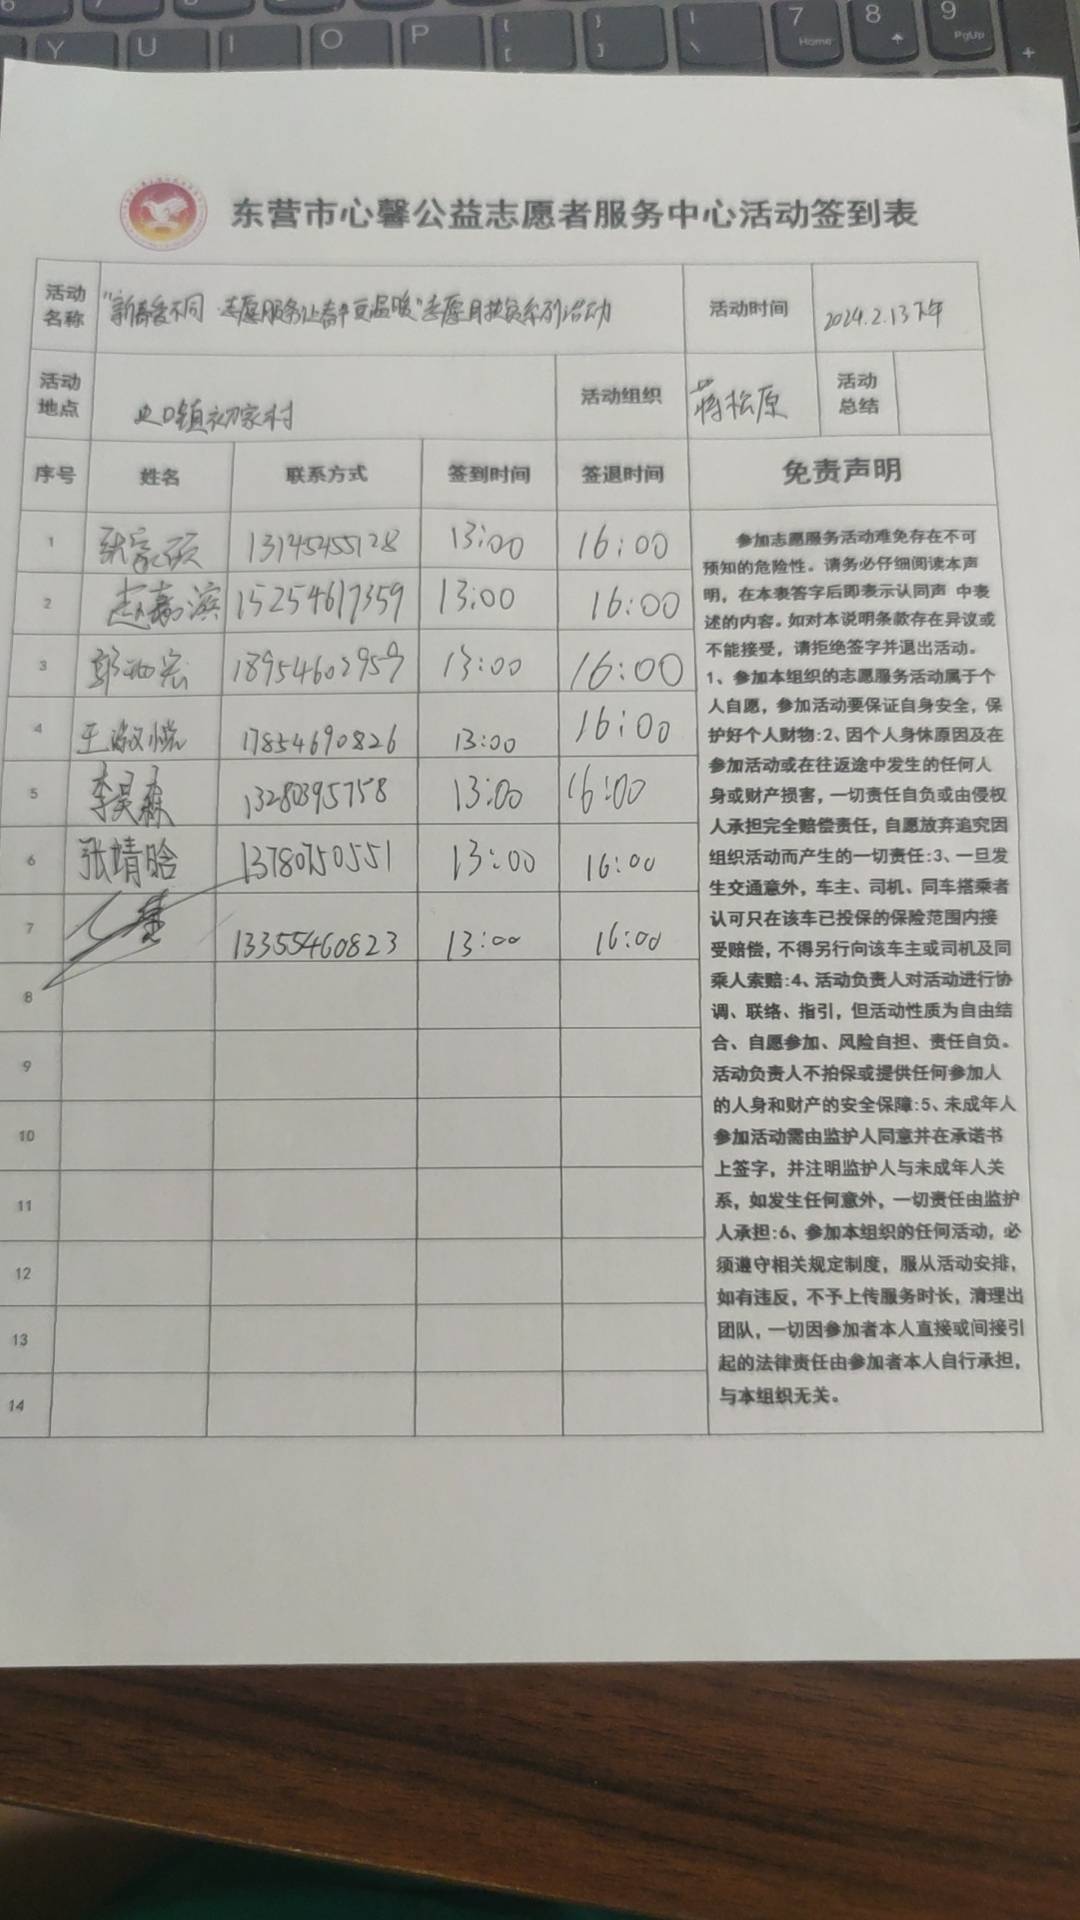 6 7 8 9
Y U I O P [ { ] } | \ 7 Home 8 9 PgUp +
东营市心馨公益志愿者服务中心活动签到表
活动名称 "新春爱不同 志愿服务让春早更温暖"志愿月扶贫系列活动 活动时间 2024.2.13下午
活动地点 史口镇初家村 活动组织 蒋松原 活动总结
序号 姓名 联系方式 签到时间 签退时间 免责声明
1 张家硕 13145455128 13:00 16:00
2 赵嘉滨 15254617359 13:00 16:00
3 18954602959 13:00 16:00
4 王淑悦 17854690826 13:00 16:00
5 李昊森 13280395758 13:00 16:00
6 张靖晗 13780750551 13:00 16:00
7 13355460823 13:00 16:00
8
9
10
11
12
13
14
参加志愿服务活动难免存在不可
预知的危险性。请务必仔细阅读本声
明，在本表答字后即表示认同声 中表
述的内容。如对本说明条款存在异议或
不能接受，请拒绝签字并退出活动。
1、参加本组织的志愿服务活动属于个
人自愿，参加活动要保证自身安全，保
护好个人财物:2、因个人身休原因及在
参加活动或在往返途中发生的任何人
身或财产损害，一切责任自负或由侵权
人承担完全赔偿责任，自愿放弃追究因
组织活动而产生的一切责任:3、一旦发
生交通意外，车主、司机、同车搭乘者
认可只在该车已投保的保险范围内接
受赔偿，不得另行向该车主或司机及同
乘人索赔:4、活动负责人对活动进行协
调、联络、指引，但活动性质为自由结
合、自愿参加、风险自担、责任自负。
活动负责人不拍保或提供任何参加人
的人身和财产的安全保障:5、未成年人
参加活动需由监护人同意并在承诺书
上签字，并注明监护人与未成年人关
系，如发生任何意外，一切责任由监护
人承担:6、参加本组织的任何活动，必
须遵守相关规定制度，服从活动安排，
如有违反，不予上传服务时长，清理出
团队，一切因参加者本人直接或间接引
起的法律责任由参加者本人自行承担，
与本组织无关。